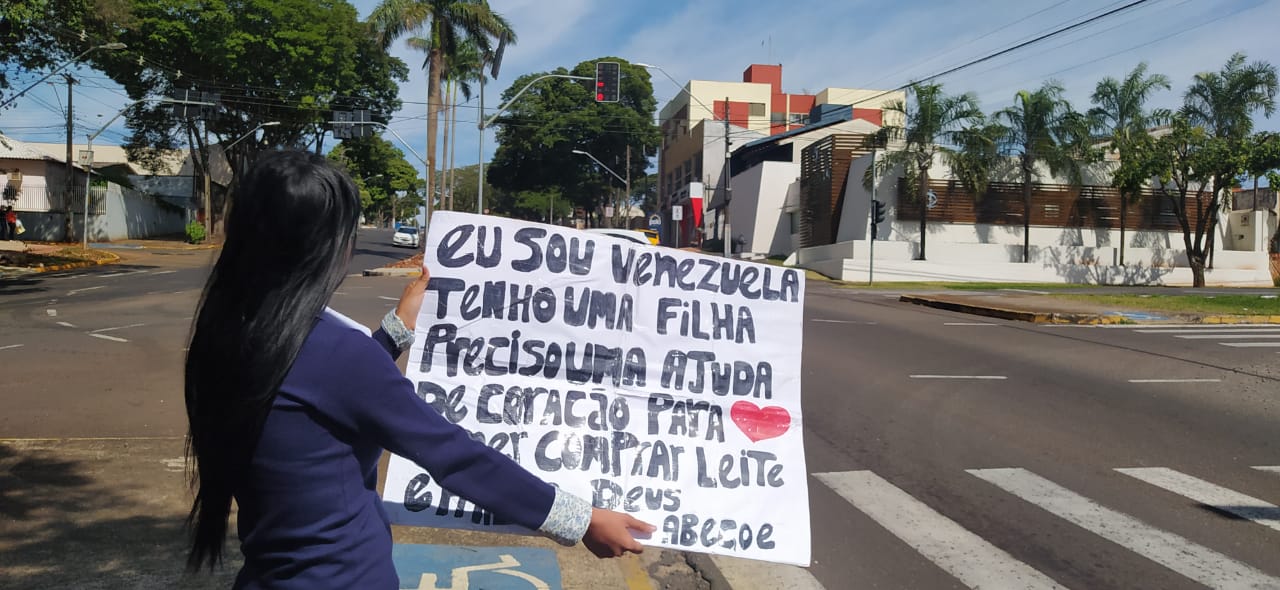 EU SOU VENEZUELA
TENHO UMA FILHA
PRECISO UMA AJUDA
DE CORACÃO PARA
COMPRAR LEITE
DEUS
ABECOE